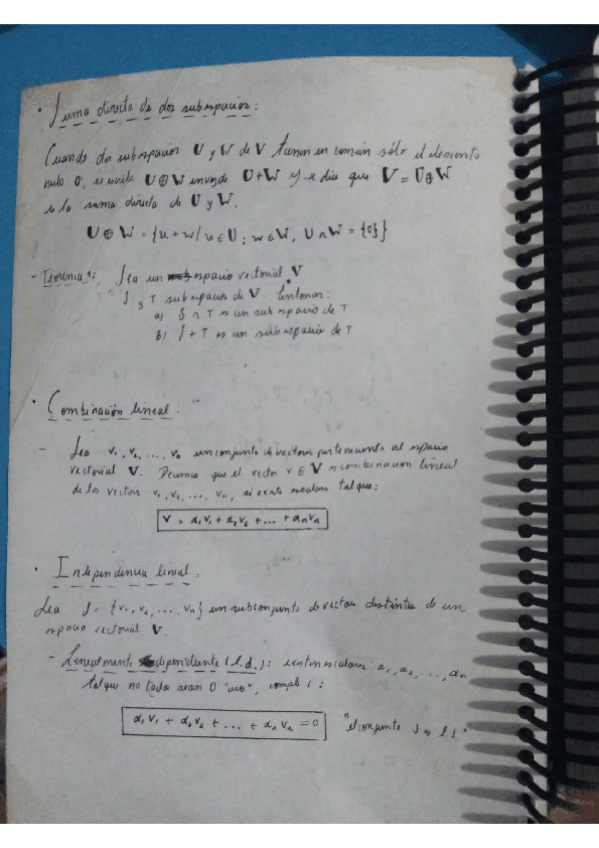 · Suma directa de dos subespacios:
Cuando dos subespacios U y W de V tienen en común sólo el elemento
nulo 0, se escribe U ⊕ W en vez de U+W y se dice que V = U⊕W
es la suma directa de U y W.
U ⊕ W = {u + w / u ∈ U ; w ∈ W, U ∩ W = {0}}
- Teorema: Sea un espacio vectorial V
S y T subespacios de V. Entonces:
a) S ∩ T es un subespacio de T
b) S + T es un subespacio de T
· Combinación lineal.
- Sea v₁, v₂, ..., vn un conjunto de vectores perteneciente al espacio
vectorial V. Decimos que el vector v ∈ V es combinación lineal
de los vectores v₁, v₂, ..., vn, si existe escalares tal que:
V = α₁v₁ + α₂v₂ + ... + αnvn
· Independencia lineal.
Sea S = {v₁, v₂, ..., vn} un subconjunto de vectores distintos de un
espacio vectorial V.
- Linealmente dependiente (l.d.): existen escalares α₁, α₂, ..., αn
tal que no todos sean 0
α₁v₁ + α₂v₂ + ... + αnvn = 0 "el conjunto S es